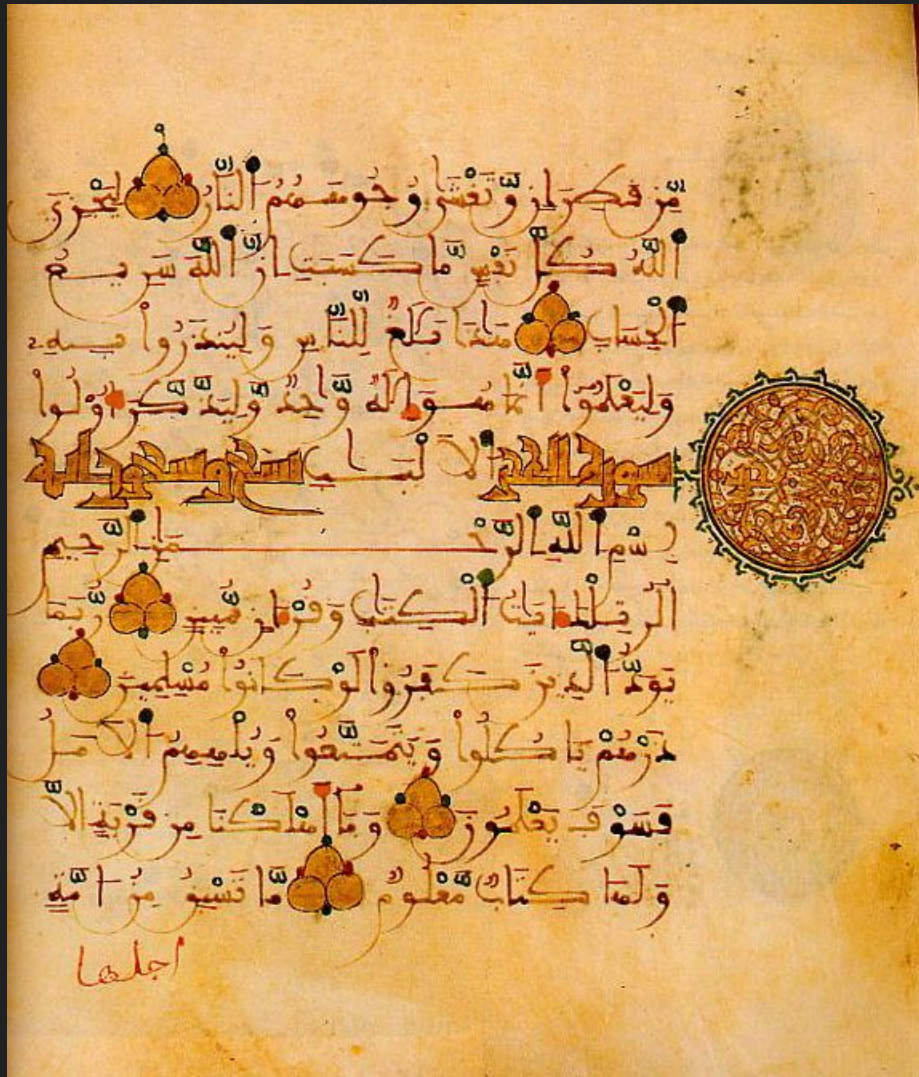 مِّن قَطِرَانٍ وَّتَغْشَىٰ وُجُوهَهُمُ اَ۬لنَّارُ لِيَجْزِيَ
اَ۬للَّهُ كُلَّ نَفْسٍ مَّا كَسَبَتِ اِنَّ اَ۬للَّهَ سَرِيعُ
اُ۬لْحِسَابِ هَٰذَا بَلَٰغٌ لِّلنَّاسِ وَلِيُنذَرُوا بِهِۦ
وَلِيَعْلَمُوٓا أَنَّمَا هُوَ إِلَٰهٌ وَّاحِدٌ وَّلِيَذَّكَّرَ أُوْلُوا
سورة الحجر اَ۬لَالْبَٰبِ تسع وتسعون اية
بِسْمِ اِ۬للَّهِ اِ۬لرَّحْمَٰنِ اِ۬لرَّحِيمِ
الٓرۚ تِلْكَ ءَايَٰتُ اُ۬لْكِتَٰبِ وَقُرْءَانٍ مُّبِينٍ رُّبَمَا
يَوَدُّ اُ۬لَّذِينَ كَفَرُوا لَوْ كَانُوا مُسْلِمِينَ
ذَرْهُمْ يَاكُلُوا وَيَتَمَتَّعُوا وَيُلْهِهِمُ اُ۬لَامَلُ
فَسَوْفَ يَعْلَمُونَ وَمَآ أَهْلَكْنَا مِن قَرْيَةٍ اِلَّا
وَلَهَا كِتَابٌ مَّعْلُومٌ مَّا تَسْبِقُ مِنُ ا۟مَّةٍ
اجلها